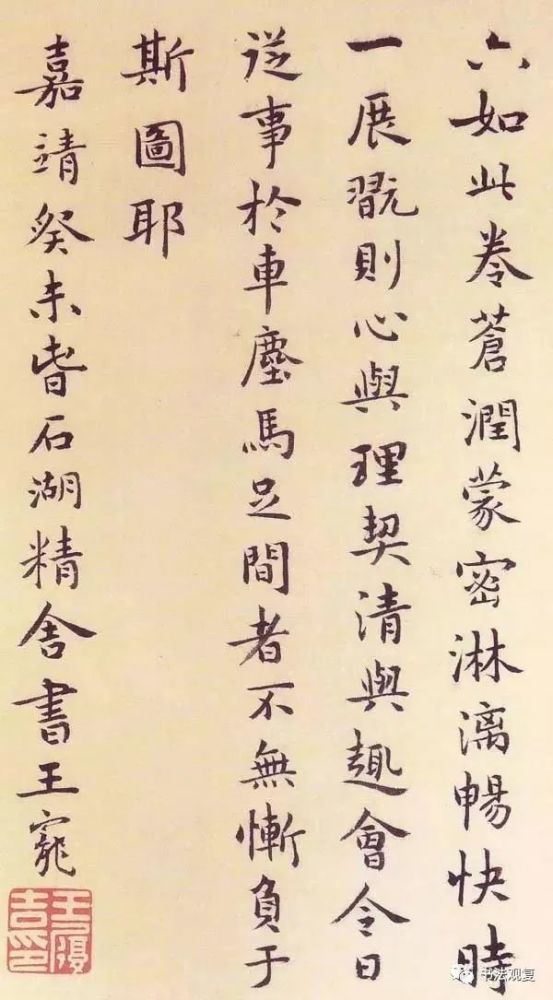 六如此卷蒼潤蒙密淋漓暢快時
一展翫則心與理契清與趣會令日
從事於車塵馬足間者不無慚負于
斯圖耶
嘉靖癸未春石湖精舍書王寵
王履吉印
书法观复